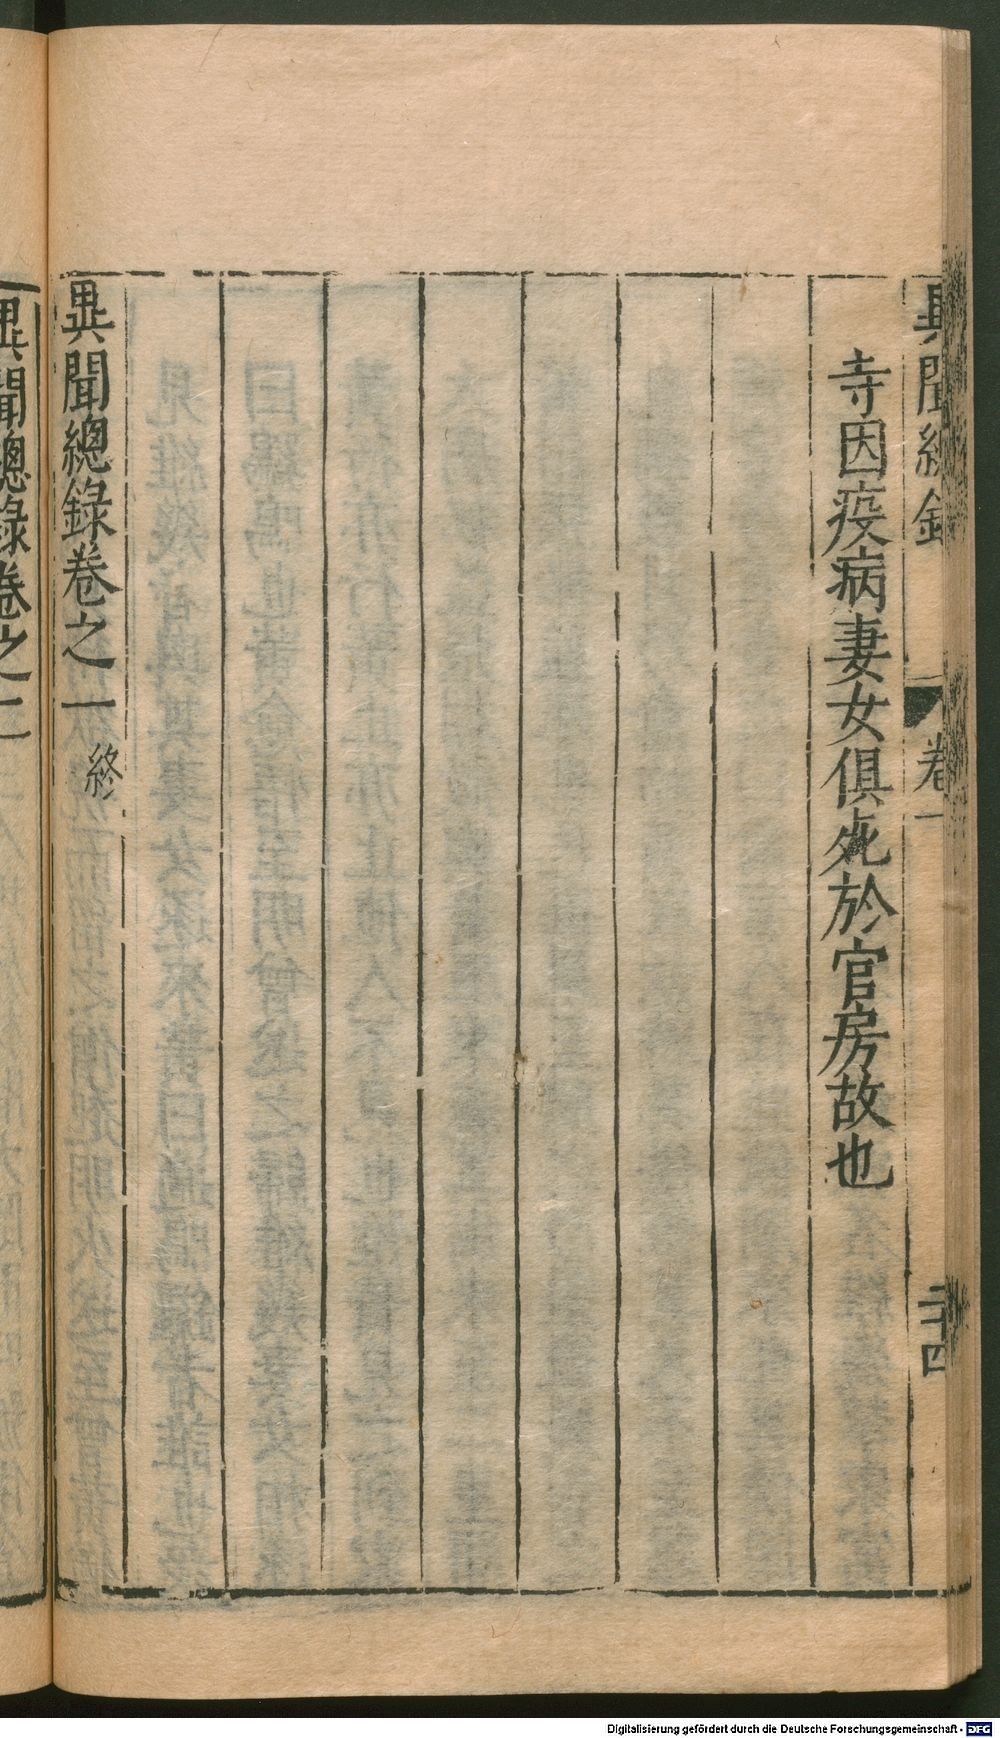 異聞總錄
卷一
二十四
寺因疫病妻女俱死於官房故也
異聞總錄卷之一
終
異聞總錄卷之二
Digitalisierung gefördert durch die Deutsche Forschungsgemeinschaft - DFG